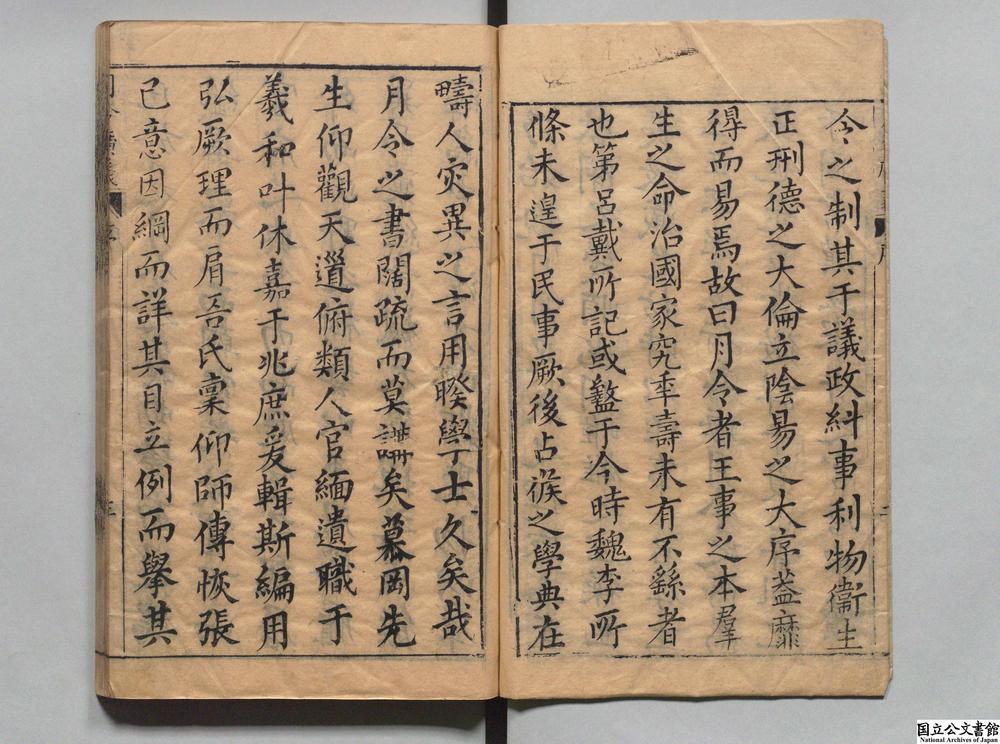 令之制其于議政糾事利物衞生
正刑德之大倫立陰昜之大序葢靡
得而易焉故曰月令者王事之本羣
生之命治國家究秊壽未有不繇者
也第呂戴所記或盩于今時魏李所
條未遑于民事厥後占𠊱之學典在
疇人灾異之言用暌學士久矣哉
月令之書闊疏而莫講矣慕岡先
生仰觀天運俯類人官緬遺職于
羲和叶休嘉于兆庶爰輯斯編用
弘厥理而肩吾氏稟仰師傳恢張
己意因綱而詳其目立例而舉其
月令廣義
序
三
国立公文書館
National Archives of Japan